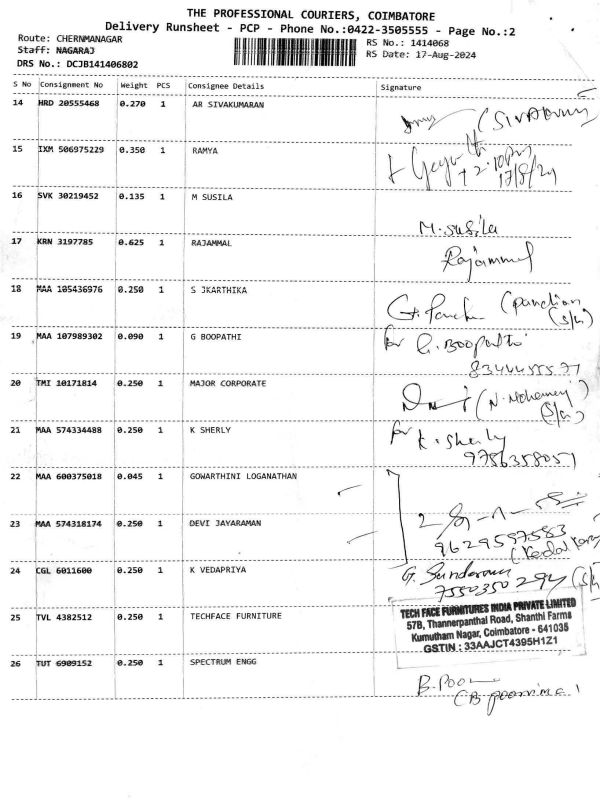 THE PROFESSIONAL COURIERS, COIMBATORE
Delivery Runsheet - PCP - Phone No.:0422-3505555 - Page No.:2
Route: CHERNMANAGAR RS No.: 1414068
Staff: NAGARAJ RS Date: 17-Aug-2024
DRS No.: DCJB141406802
S No Consignment No Weight PCS Consignee Details Signature
14 HRD 20555468 0.270 1 AR SIVAKUMARAN
15 IXM 506975229 0.350 1 RAMYA
2.10pm
17/8/24
16 SVK 30219452 0.135 1 M SUSILA
M. susila
17 KRN 3197785 0.625 1 RAJAMMAL
Rajammal
18 MAA 105436976 0.250 1 S JKARTHIKA
(Pandian
(S/G)
19 MAA 107989302 0.090 1 G BOOPATHI
for G. Boopathi
20 TMI 10171814 0.250 1 MAJOR CORPORATE
(S/G)
21 MAA 574334488 0.250 1 K SHERLY
for K. Sherly
9756358051
22 MAA 600375018 0.045 1 GOWARTHINI LOGANATHAN
23 MAA 574318174 0.250 1 DEVI JAYARAMAN
9629597583
24 CGL 6011600 0.250 1 K VEDAPRIYA
G. Sundaram
7550350294
25 TVL 4382512 0.250 1 TECHFACE FURNITURE
TECH FACE FURNITURES INDIA PRIVATE LIMITED
57B, Thannerpanthal Road, Shanthi Farms
Kumutham Nagar, Coimbatore - 641035
GSTIN : 33AAJCT4395H1Z1
26 TUT 6909152 0.250 1 SPECTRUM ENGG
B. Poo
(B poornima)